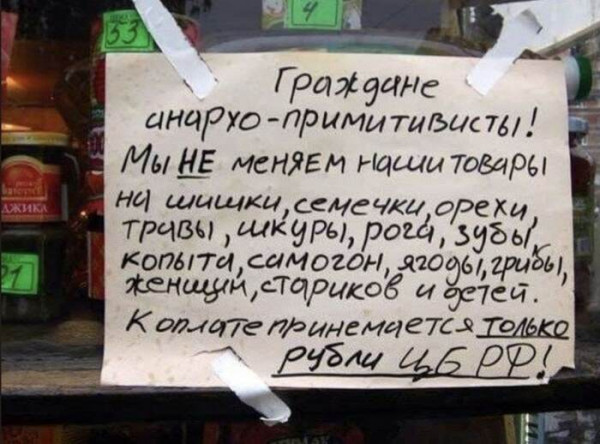 33
4
Граждане
анархо-примитивисты!
Мы НЕ меняем наши товары
на шишки, семечки, орехи,
травы, шкуры, рога, зубы,
копыта, самогон, ягоды, грибы,
женщин, стариков и детей.
К оплате принемается только
рубли ЦБ РФ!
ДЖИКА
21